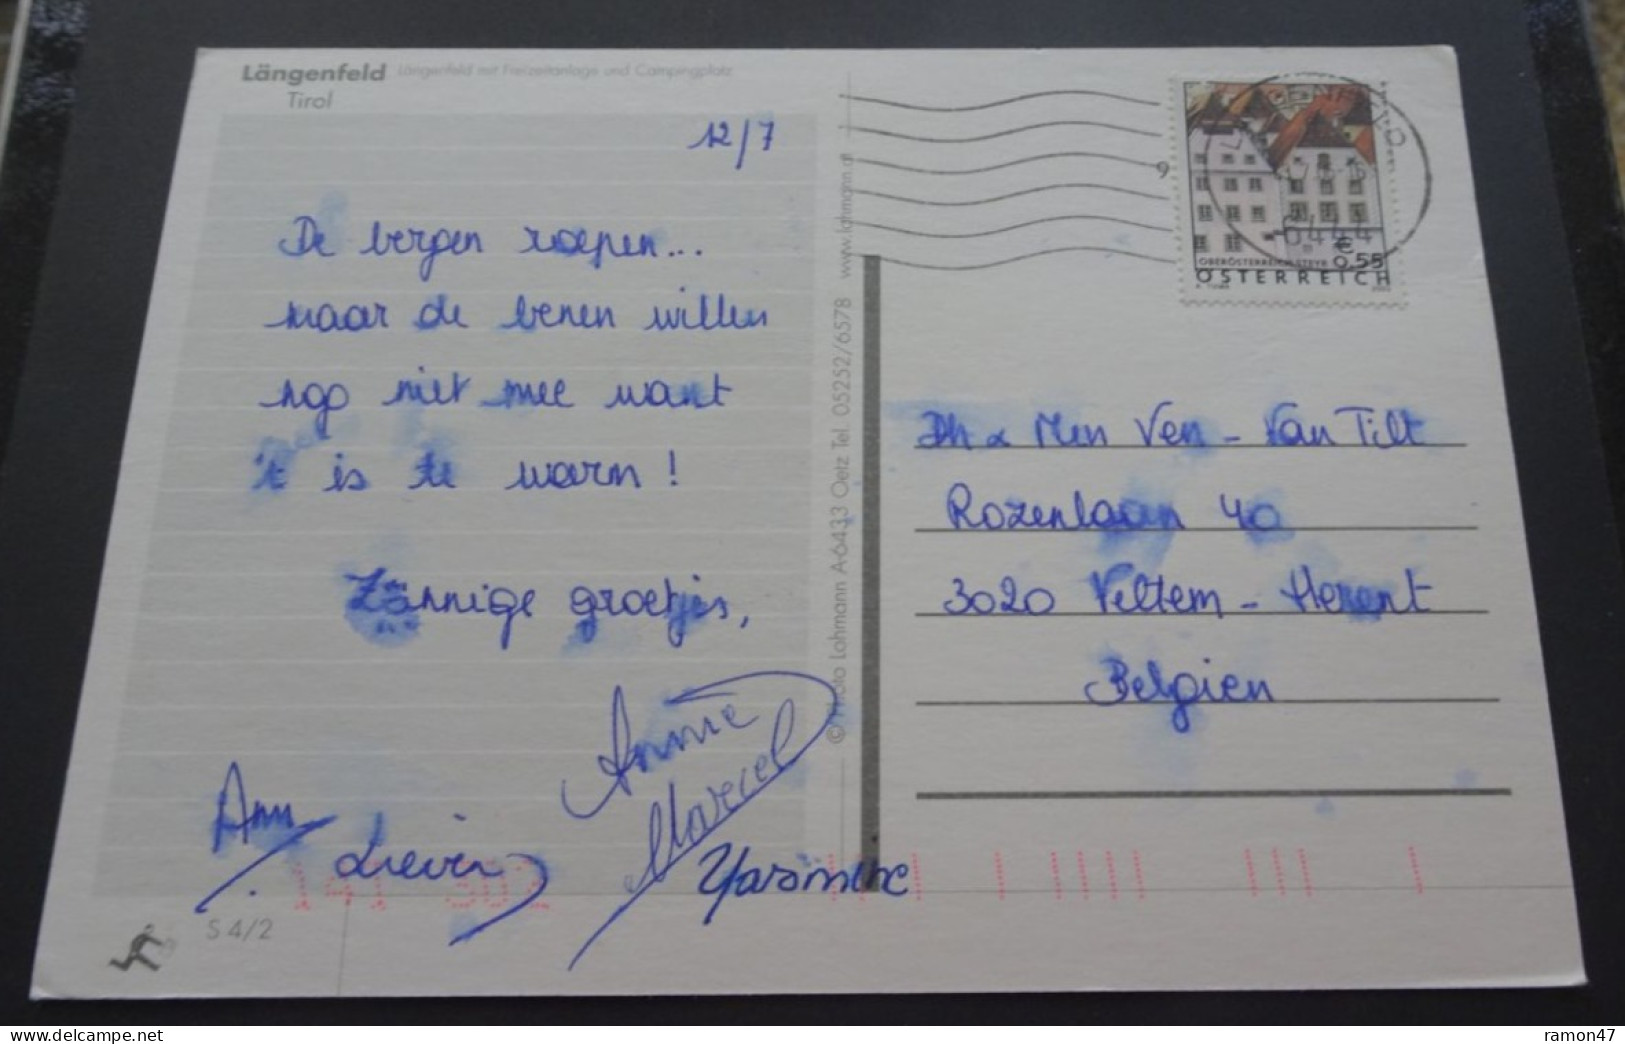 Längenfeld Längenfeld mit Freizeitanlage und Campingplatz
Tirol
12/7
De bergen roepen...
maar de benen willen
nog niet mee want
't is te warm !
Zonnige groetjes,
Annie
Marcel
Ann
Lieven
S 4/2
141 302
Lohmann A-6433 Oetz Tel. 05252/6578 www.lohmann.at
9
6444
€
0,55
OBERÖSTERREICH, STEYR
ÖSTERREICH
Dh & Mev Ven - Van Tilt
Rozenlaan 40
3020 Veltem - Herent
Belgien
delcampe.net
ramon47